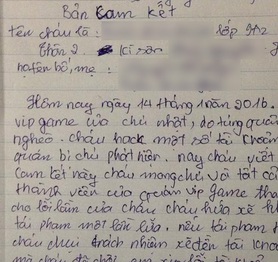 Bản Cam kết
tên cháu là : lớp 9A2
thôn 2 . Kì sơn
họ tên bố, mẹ :
Hôm nay ngày 14 tháng 1 năm 2016.
vip game của chủ nhật, do túng quá
nghèo. cháu hack một số tài khoản
quán bị chủ phát hiện. nay cháu viết
cam kết này cháu mong chú và tất cả
thành viên của quán vip game tha
cho lỗi lầm của cháu cháu hứa sẽ
tái phạm một lần nữa. nếu tái phạm
cháu chịu trách nhiệm